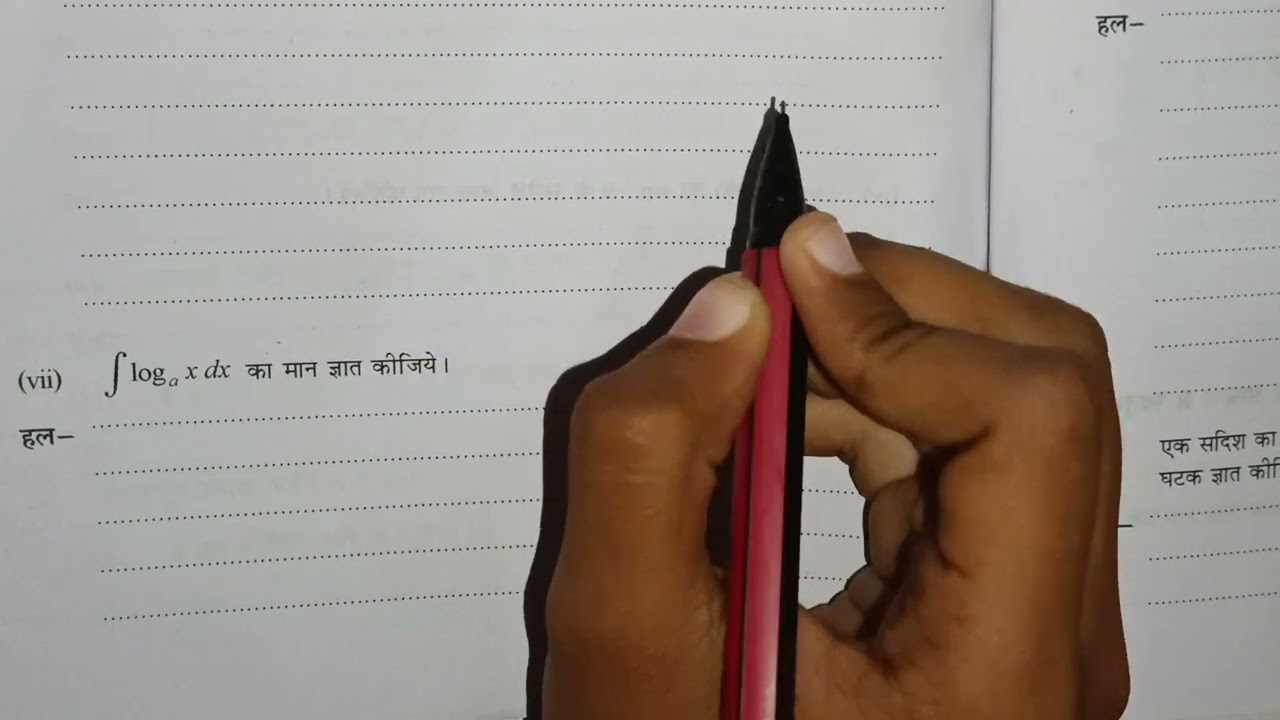 (vii) ∫ logₐ x dx का मान ज्ञात कीजिये।
हल–
हल–
एक सदिश का
घटक ज्ञात